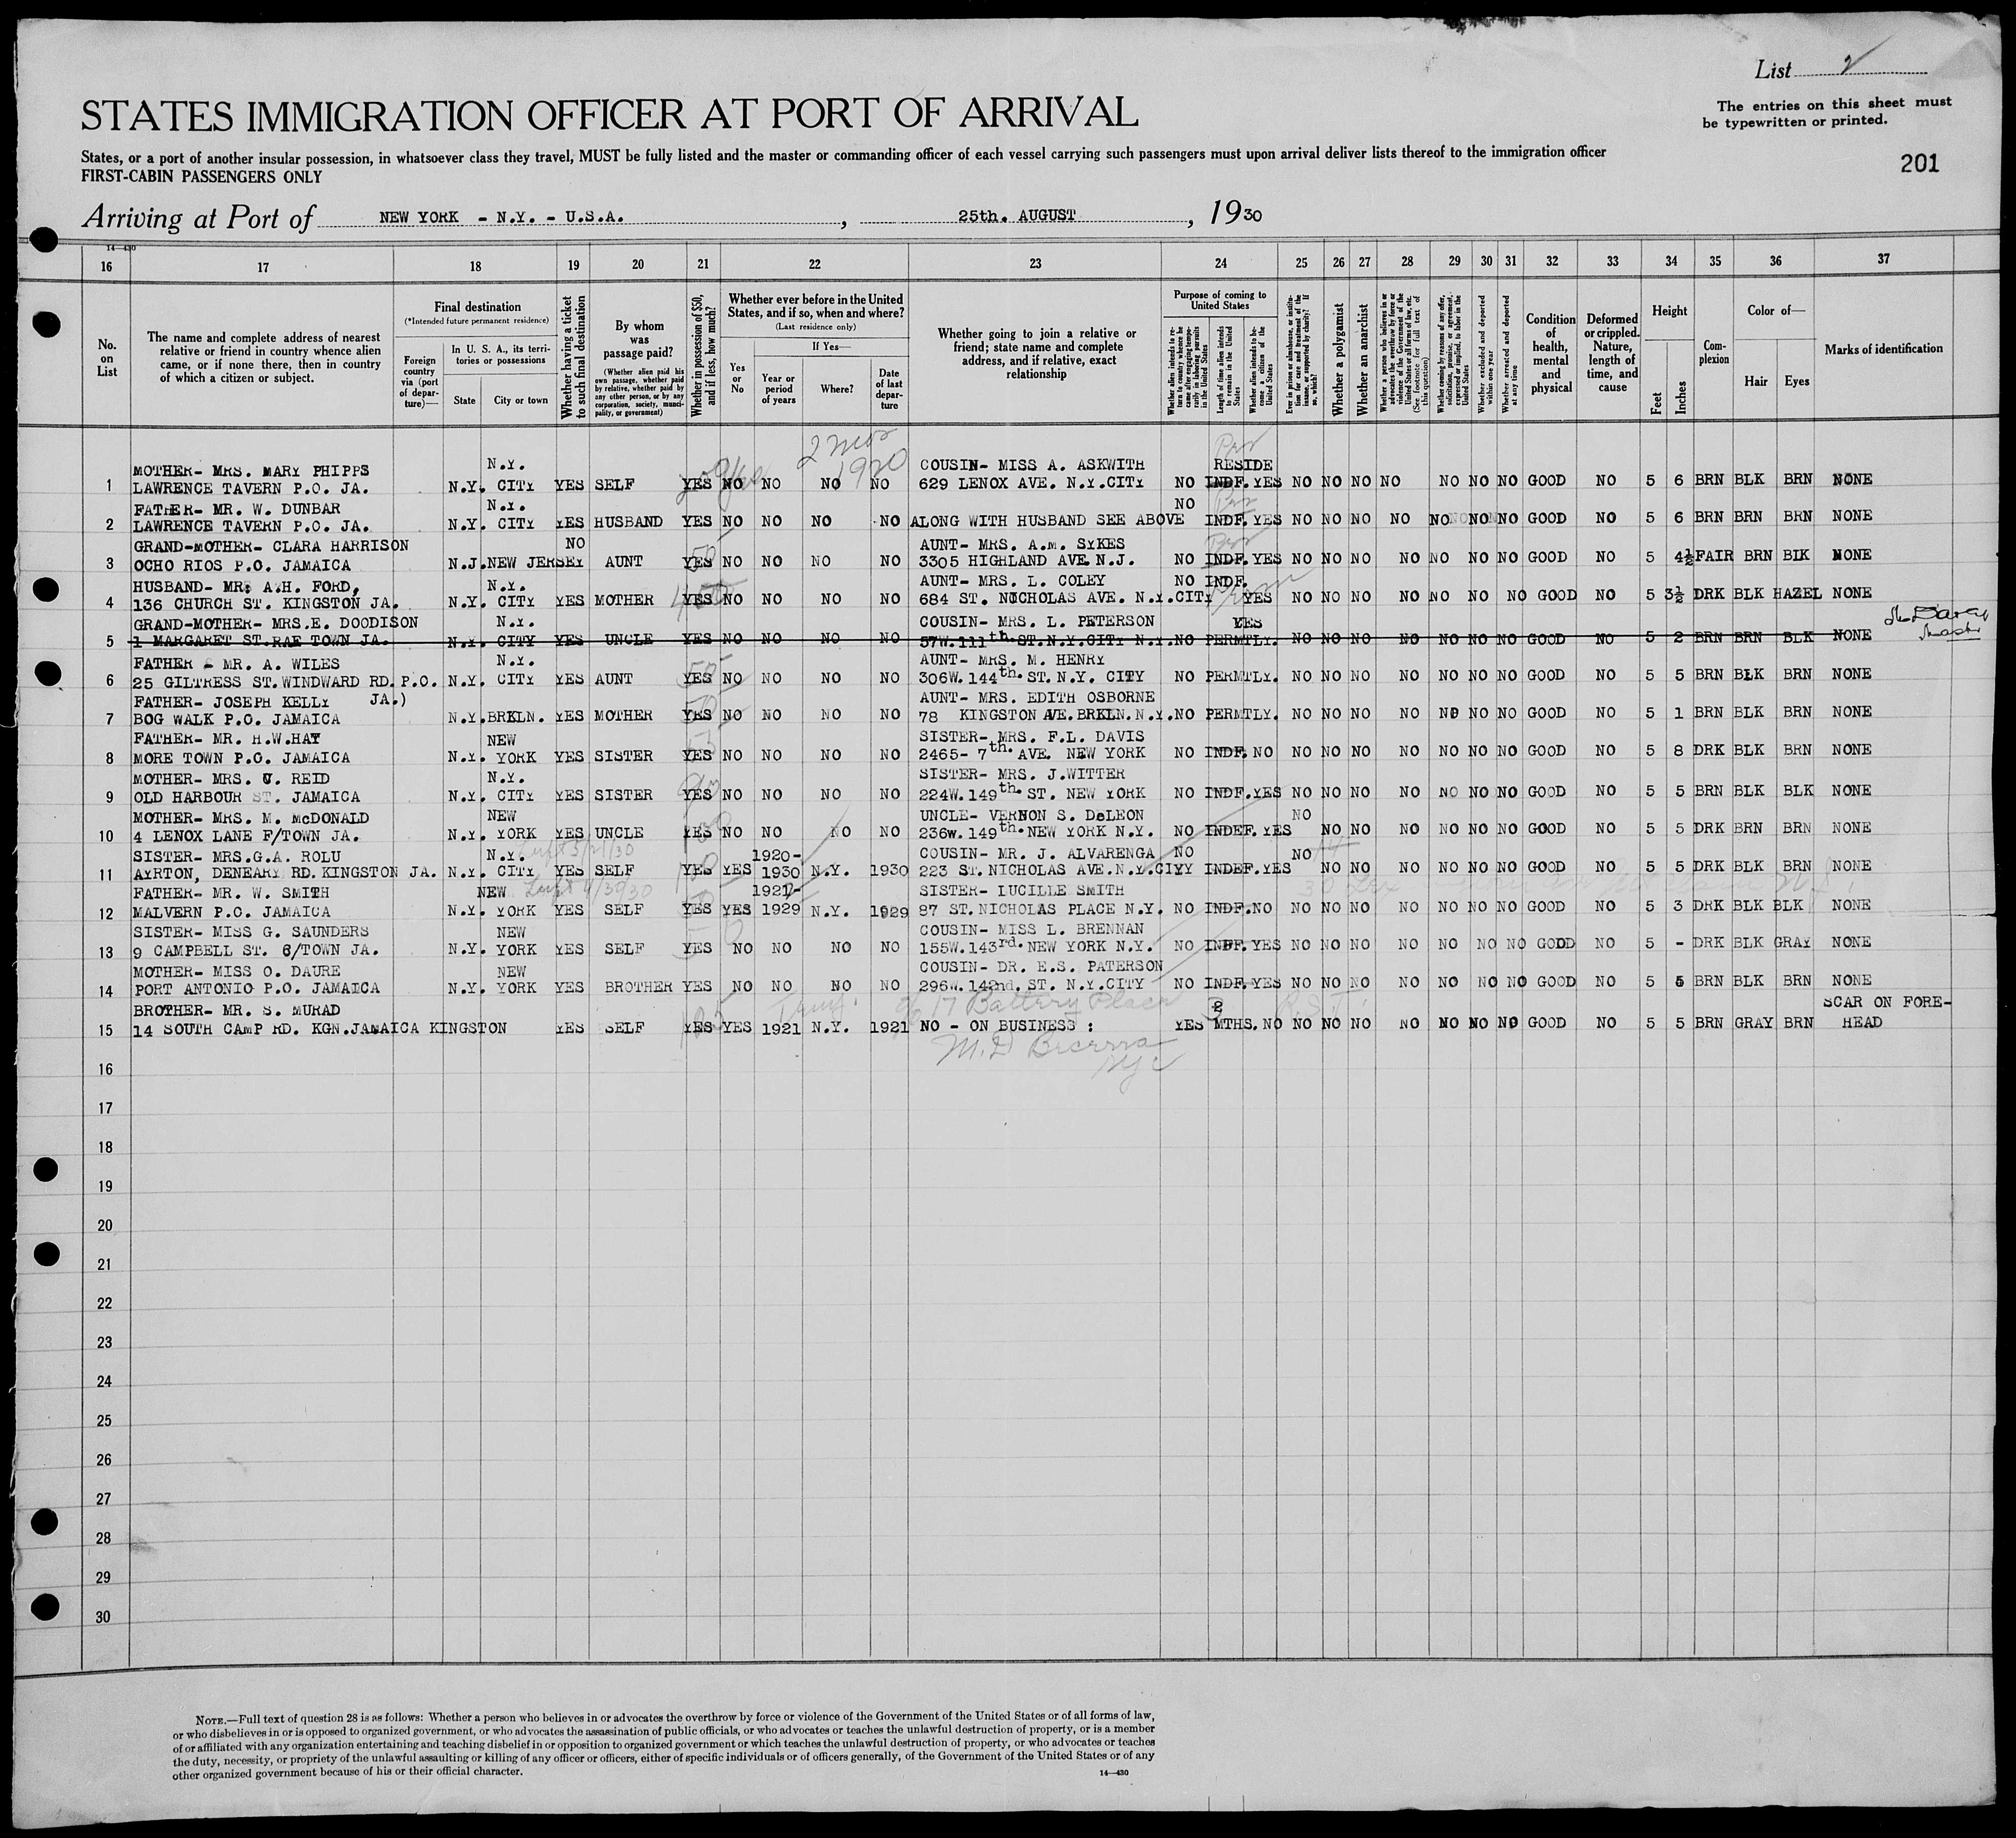 List 2
STATES IMMIGRATION OFFICER AT PORT OF ARRIVAL
The entries on this sheet must
be typewritten or printed.
States, or a port of another insular possession, in whatsoever class they travel, MUST be fully listed and the master or commanding officer of each vessel carrying such passengers must upon arrival deliver lists thereof to the immigration officer
FIRST-CABIN PASSENGERS ONLY
201
Arriving at Port of NEW YORK - N.Y. - U.S.A. , 25th. AUGUST , 1930
14—430
16 17 18 19 20 21 22 23 24 25 26 27 28 29 30 31 32 33 34 35 36 37
No. on List
The name and complete address of nearest relative or friend in country whence alien came, or if none there, then in country of which a citizen or subject.
Final destination
(*Intended future permanent residence)
Foreign country via (port of departure)—
In U. S. A., its territories or possessions
State
City or town
Whether having a ticket to such final destination
By whom was passage paid?
(Whether alien paid his own passage, whether paid by relative, whether paid by any other person, or by any corporation, society, municipality, or government)
Whether in possession of $50, and if less, how much?
Whether ever before in the United States, and if so, when and where?
(Last residence only)
If Yes—
Yes or No
Year or period of years
Where?
Date of last departure
Whether going to join a relative or friend; state name and complete address, and if relative, exact relationship
Purpose of coming to United States
Whether alien intends to return to country whence he came after engaging temporarily in laboring pursuits in the United States
Length of time alien intends to remain in the United States
Whether alien intends to become a citizen of the United States
Ever in prison or almshouse, or institution for care and treatment of the insane, or supported by charity? If so, which?
Whether a polygamist
Whether an anarchist
Whether a person who believes in or advocates the overthrow by force or violence of the Government of the United States or all forms of law, etc. (See footnote for full text of this question)
Whether coming by reasons of any offer, solicitation, promise, or agreement, expressed or implied, to labor in the United States
Whether excluded and deported within one year
Whether arrested and deported at any time
Condition of health, mental and physical
Deformed or crippled. Nature, length of time, and cause
Height
Feet
Inches
Complexion
Color of—
Hair
Eyes
Marks of identification
2 mos
1920
MOTHER- MRS. MARY PHIPPS N.Y. COUSIN- MISS A. ASKWITH RESIDE
1 LAWRENCE TAVERN P.O. JA. N.Y. CITY YES SELF YES NO NO NO NO 629 LENOX AVE. N.Y.CITY NO INDF. YES NO NO NO NO NO NO NO GOOD NO 5 6 BRN BLK BRN NONE
FATHER- MR. W. DUNBAR N.Y. NO
2 LAWRENCE TAVERN P.O. JA. N.Y. CITY YES HUSBAND YES NO NO NO NO ALONG WITH HUSBAND SEE ABOVE INDF. YES NO NO NO NO NO NO NO GOOD NO 5 6 BRN BRN BRN NONE
GRAND-MOTHER- CLARA HARRISON NO AUNT- MRS. A.M. SYKES
3 OCHO RIOS P.O. JAMAICA N.J. NEW JERSEY AUNT YES NO NO NO NO 3305 HIGHLAND AVE. N.J. NO INDF. YES NO NO NO NO NO NO NO GOOD NO 5 4½ FAIR BRN BLK NONE
HUSBAND- MR: A.H. FORD, N.Y. AUNT- MRS. L. COLEY NO INDF.
4 136 CHURCH ST. KINGSTON JA. N.Y. CITY YES MOTHER YES NO NO NO NO 684 ST. NICHOLAS AVE. N.Y.CITY YES NO NO NO NO NO NO NO GOOD NO 5 3½ DRK BLK HAZEL NONE
GRAND-MOTHER- MRS.E. DOODISON N.Y. COUSIN- MRS. L. PETERSON YES
5 1 MARGARET ST.RAE TOWN JA. N.Y. CITY YES UNCLE YES NO NO NO NO 57W.111th ST.N.Y.CITY N.Y. NO PERMTLY. NO NO NO NO NO NO NO GOOD NO 5 2 BRN BRN BLK NONE
FATHER - MR. A. WILES N.Y. AUNT- MRS. M. HENRY
6 25 GILTRESS ST.WINDWARD RD. P.O. N.Y. CITY YES AUNT YES NO NO NO NO 306W. 144th. ST. N.Y. CITY NO PERMTLY. NO NO NO NO NO NO NO GOOD NO 5 5 BRN BLK BRN NONE
FATHER- JOSEPH KELLY JA.) AUNT- MRS. EDITH OSBORNE
7 BOG WALK P.O. JAMAICA N.Y. BRKLN. YES MOTHER YES NO NO NO NO 78 KINGSTON AVE. BRKLN. N.Y. NO PERMTLY. NO NO NO NO NO NO NO GOOD NO 5 1 BRN BLK BRN NONE
FATHER- MR. H.W.HAY NEW SISTER- MRS. F.L. DAVIS
8 MORE TOWN P.O. JAMAICA N.Y. YORK YES SISTER YES NO NO NO NO 2465- 7th. AVE. NEW YORK NO INDF. NO NO NO NO NO NO NO NO GOOD NO 5 8 DRK BLK BRN NONE
MOTHER- MRS. U. REID N.Y. SISTER- MRS. J.WITTER
9 OLD HARBOUR ST. JAMAICA N.Y. CITY YES SISTER YES NO NO NO NO 224W. 149th. ST. NEW YORK NO INDF. YES NO NO NO NO NO NO NO GOOD NO 5 5 BRN BLK BLK NONE
MOTHER- MRS. M. McDONALD NEW UNCLE- VERNON S. DeLEON NO
10 4 LENOX LANE F/TOWN JA. N.Y. YORK YES UNCLE YES NO NO NO NO 236W. 149th. NEW YORK N.Y. NO INDEF. YES NO NO NO NO NO NO GOOD NO 5 5 DRK BRN BRN NONE
SISTER- MRS.G.A. ROLU N.Y. 1920- COUSIN- MR. J. ALVARENGA NO NO
11 AYRTON, DENEARY RD. KINGSTON JA. N.Y. CITY YES SELF YES YES 1930 N.Y. 1930 223 ST. NICHOLAS AVE.N.Y.CITY INDEF. YES NO NO NO NO NO NO GOOD NO 5 5 DRK BLK BRN NONE
FATHER- MR. W. SMITH NEW SISTER- LUCILLE SMITH
12 MALVERN P.O. JAMAICA N.Y. YORK YES SELF YES YES 1929 N.Y. 1929 87 ST. NICHOLAS PLACE N.Y. NO INDF. NO NO NO NO NO NO NO NO GOOD NO 5 3 DRK BLK BLK NONE
SISTER- MISS G. SAUNDERS NEW COUSIN- MISS L. BRENNAN
13 9 CAMPBELL ST. 6/TOWN JA. N.Y. YORK YES SELF YES NO NO NO NO 155W. 143rd. NEW YORK N.Y. NO INDF. YES NO NO NO NO NO NO NO GOOD NO 5 - DRK BLK GRAY NONE
MOTHER- MISS O. DAURE NEW COUSIN- DR. E.S. PATERSON
14 PORT ANTONIO P.O. JAMAICA N.Y. YORK YES BROTHER YES NO NO NO NO 296W. 142nd. ST. N.Y.CITY NO INDF. YES NO NO NO NO NO NO NO GOOD NO 5 5 BRN BLK BRN NONE
BROTHER- MR. S. MURAD 17 Battery Place SCAR ON FORE-
15 14 SOUTH CAMP RD. KGN.JAMAICA KINGSTON YES SELF YES YES 1921 N.Y. 1921 NO - ON BUSINESS : YES MTHS. NO NO NO NO NO NO NO NO GOOD NO 5 5 BRN GRAY BRN HEAD
16
17
18
19
20
21
22
23
24
25
26
27
28
29
30
NOTE.—Full text of question 28 is as follows: Whether a person who believes in or advocates the overthrow by force or violence of the Government of the United States or of all forms of law,
or who disbelieves in or is opposed to organized government, or who advocates the assassination of public officials, or who advocates or teaches the unlawful destruction of property, or is a member
of or affiliated with any organization entertaining and teaching disbelief in or opposition to organized government or which teaches the unlawful destruction of property, or who advocates or teaches
the duty, necessity, or propriety of the unlawful assaulting or killing of any officer or officers, either of specific individuals or of officers generally, of the Government of the United States or of any
other organized government because of his or their official character.
14—430